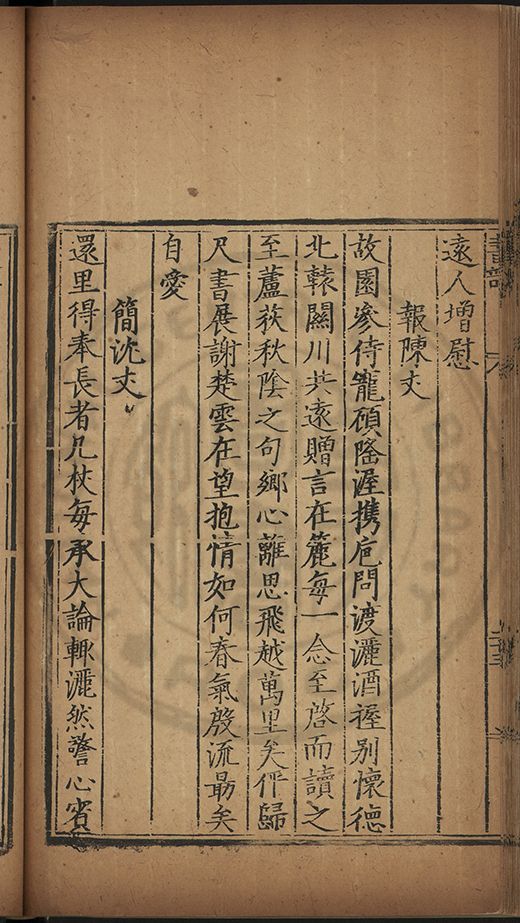 遠人增慰
報陳丈
故園參侍寵碩隆渥携庖問渡灑酒握别懷德
北轅關川共遠贈言在簏每一念至啓而讀之
至蘆荻秋陰之句鄉心離思飛越萬里矣伻歸
尺書展謝楚雲在望抱情如何春氣殷流勗矣
自愛
簡沈丈
還里得奉長者几杖每承大論輙灑然警心